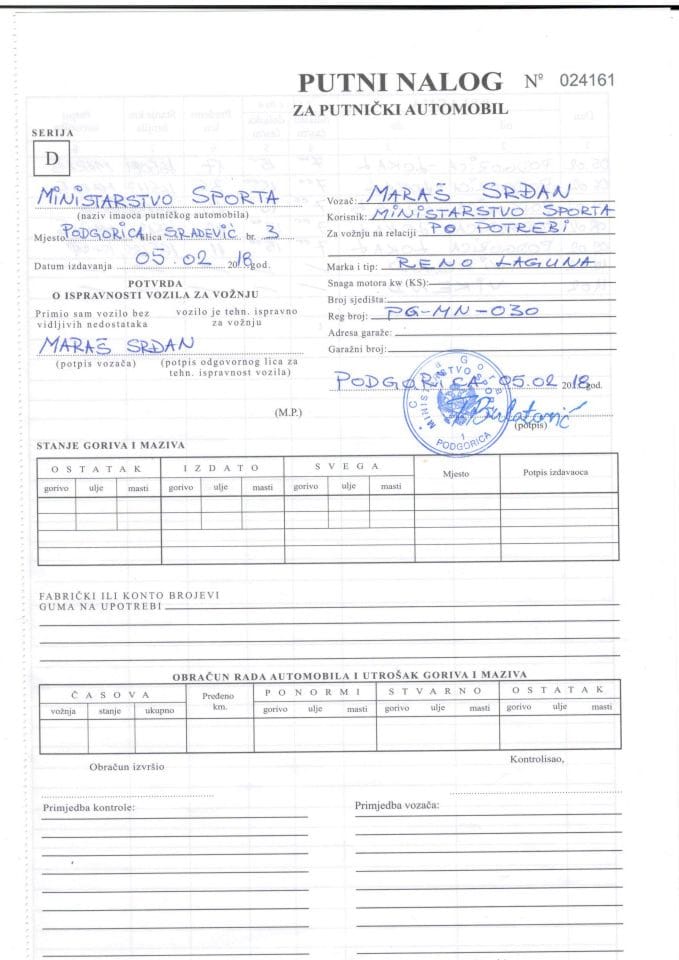 PUTNI NALOG Nº 024161
ZA PUTNIČKI AUTOMOBIL
SERIJA
D
MINISTARSTVO SPORTA
(naziv imaoca putničkog automobila)
Mjesto PODGORICA ulica S.RADEVIĆ br. 3
Datum izdavanja 05.02 2018 god.
POTVRDA
O ISPRAVNOSTI VOZILA ZA VOŽNJU
Primio sam vozilo bez vidljivih nedostataka
vozilo je tehn. ispravno za vožnju
MARAŠ SRĐAN
(potpis vozača)
(potpis odgovornog lica za tehn. ispravnost vozila)
(M.P.)
Vozač: MARAŠ SRĐAN
Korisnik: MINISTARSTVO SPORTA
Za vožnju na relaciji PO POTREBI
Marka i tip: RENO LAGUNA
Snaga motora kw (KS):
Broj sjedišta:
Reg broj: PG-MN-030
Adresa garaže:
Garažni broj:
PODGORICA 05.02 2018 god.
(potpis)
MINISTARSTVO SPORTA
1
PODGORICA
STANJE GORIVA I MAZIVA
OSTATAK IZDATO SVEGA Mjesto Potpis izdavaoca
gorivo ulje masti gorivo ulje masti gorivo ulje masti
FABRIČKI ILI KONTO BROJEVI
GUMA NA UPOTREBI
OBRAČUN RADA AUTOMOBILA I UTROŠAK GORIVA I MAZIVA
ČASOVA Pređeno km. PO NORMI STVARNO OSTATAK
vožnja stanje ukupno gorivo ulje masti gorivo ulje masti gorivo ulje masti
Obračun izvršio
Kontrolisao,
Primjedba kontrole:
Primjedba vozača: